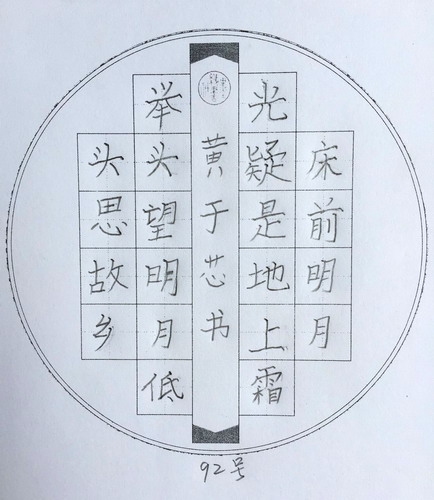 床前明月
光疑是地上霜
举头望明月低
头思故乡
黄于芯书
92号